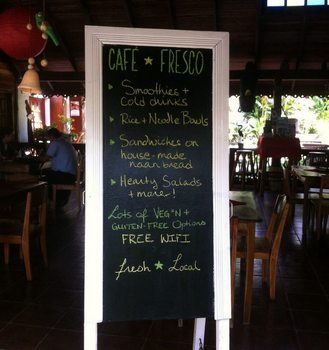 CAFÉ ★ FRESCO
Smoothies +
Cold drinks
Rice + Noodle Bowls
Sandwiches on
house-made
naan bread
Hearty Salads
+ more!
Lots of VEG*N +
GLUTEN-FREE Options
FREE WIFI
fresh ★ Local